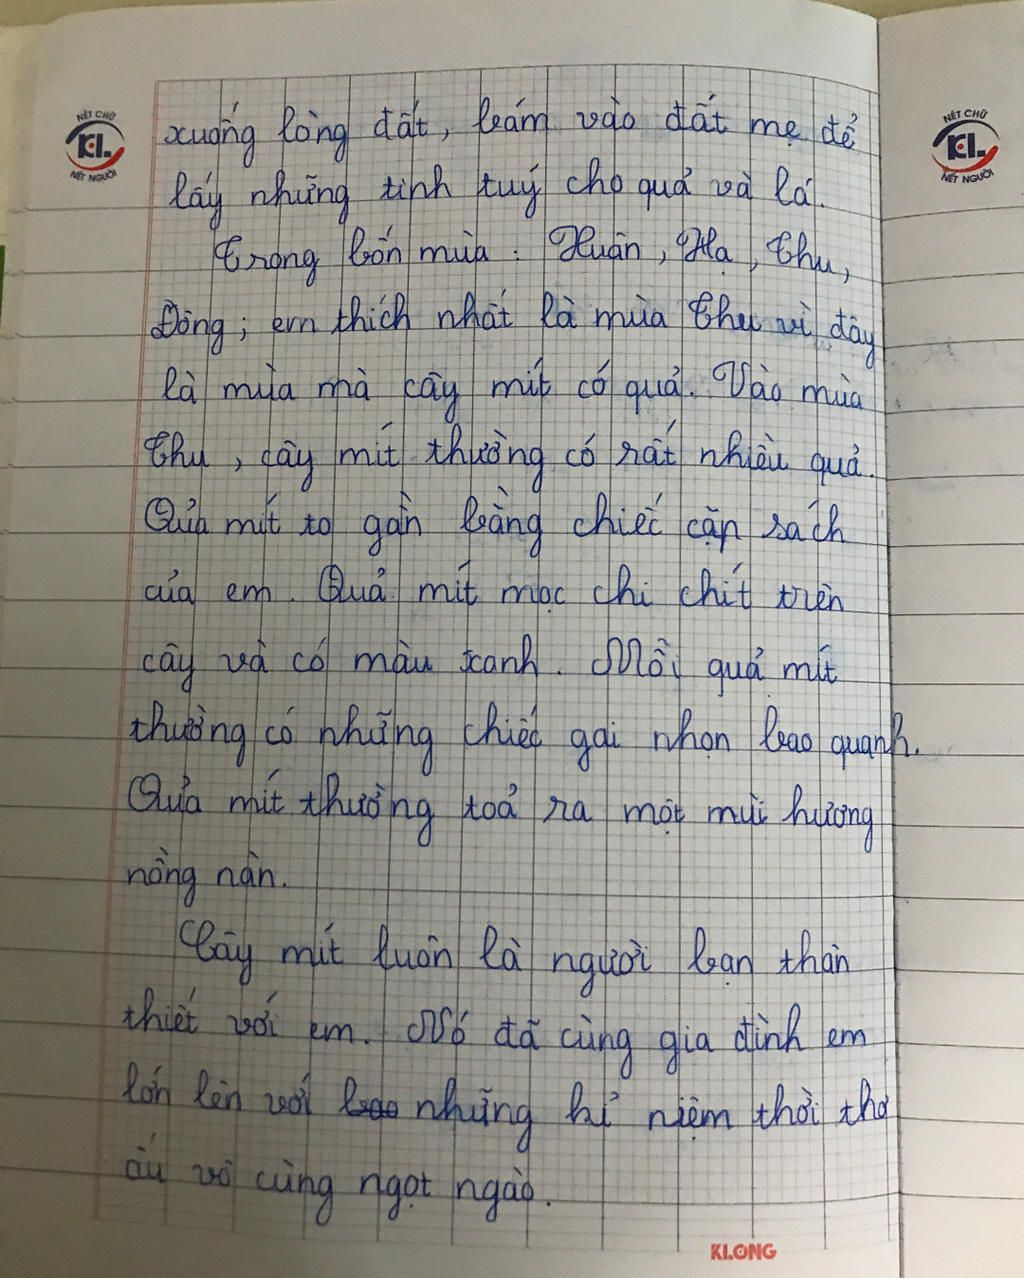 NÉT CHỮ
KL.
NẾT NGƯỜI
NÉT CHỮ
KL.
NẾT NGƯỜI
xuống lòng đất, bám vào đất mẹ để
lấy những tinh tuý cho quả và lá.
Trong bốn mùa : Xuân, Hạ, Thu,
Đông; em thích nhất là mùa Thu vì đây
là mùa mà cây mít có quả. Vào mùa
Thu, cây mít thường có rất nhiều quả.
Qủa mít to gần bằng chiếc cặp sách
của em. Quả mít mọc chi chít trên
cây và có màu xanh. Mỗi quả mít
thường có những chiếc gai nhọn bao quanh.
Qủa mít thường toả ra một mùi hương
nồng nàn.
Cây mít luôn là người bạn thân
thiết với em. Nó đã cùng gia đình em
lớn lên với bao những kỉ niệm thời thơ
ấu vô cùng ngọt ngào.
KLONG